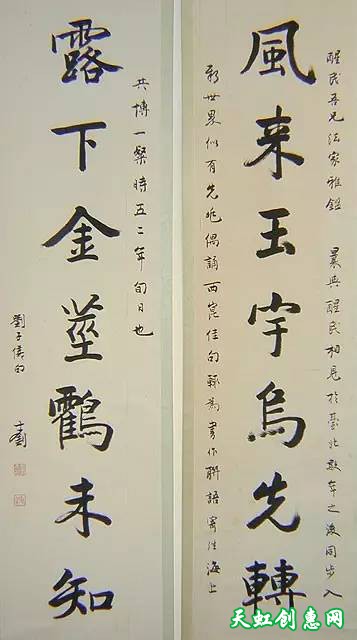 醒民吾兄法家雅鑑 曩與醒民相見於臺北數年之後同步入
風来玉宇烏先轉
新世界似有先兆偶誦西崑佳句輒為書作聯語寄往海上
共博一粲時五二年旬日也
露下金莖鸖未知
劉子侯
天虹创惠网